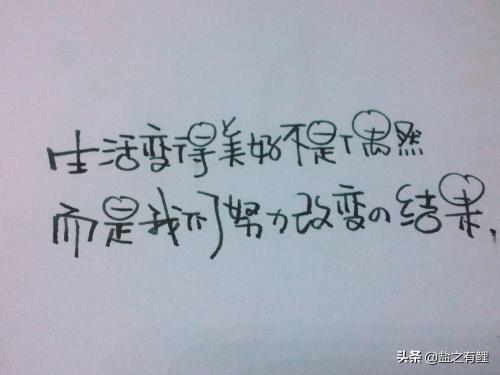 生活变得美好不是偶然
而是我们努力改变の结果.
头条 @盐之有鲤